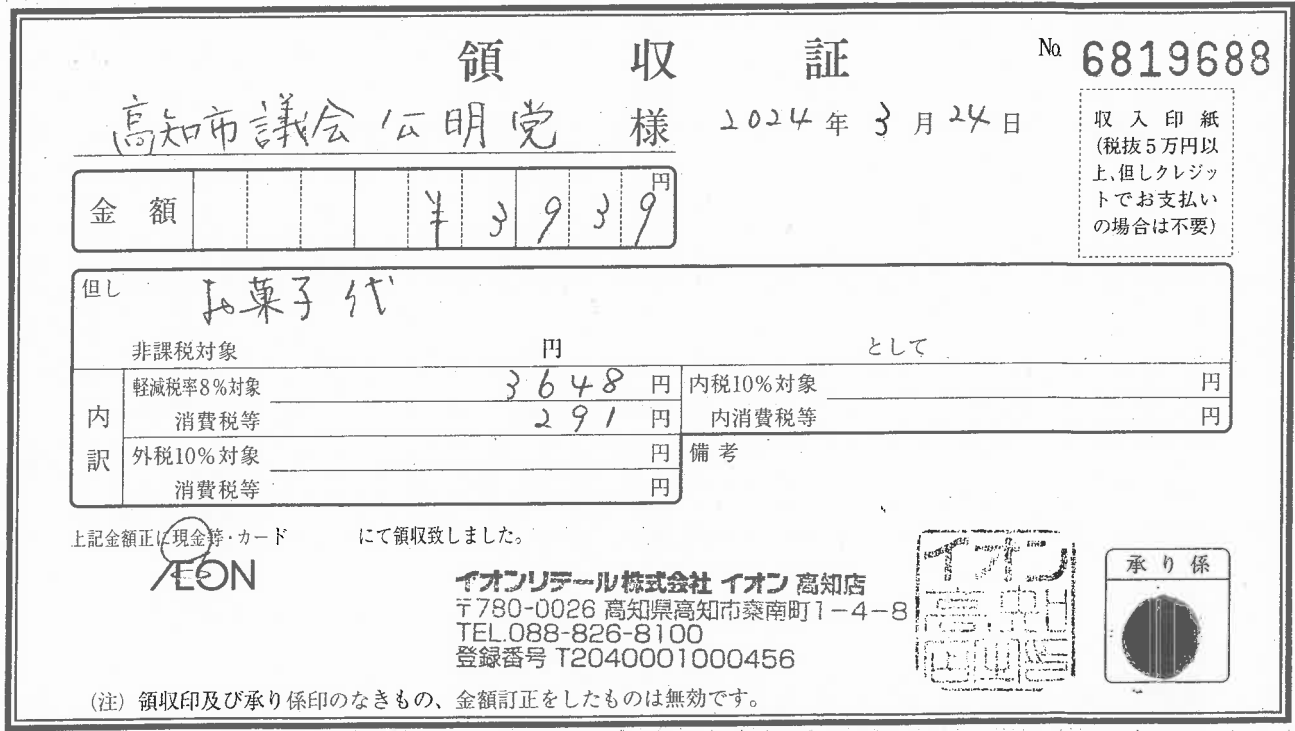 領収証
№ 6819688
高知市議会公明党 様 2024年3月24日
収入印紙
(税抜5万円以
上、但しクレジッ
トでお支払い
の場合は不要)
金額 ¥3939円
但し お菓子代
非課税対象 円 として
内訳
軽減税率8%対象 3648円 内税10%対象 円
消費税等 291円 内消費税等 円
外税10%対象 円 備考
消費税等 円
上記金額正に現金等・カード にて領収致しました。
ÆON
イオンリテール株式会社 イオン高知店
〒780-0026 高知県高知市秦南町1-4-8
TEL.088-826-8100
登録番号 T2040001000456
イオン
高知
承り係
(注) 領収印及び承り係印のなきもの、金額訂正をしたものは無効です。